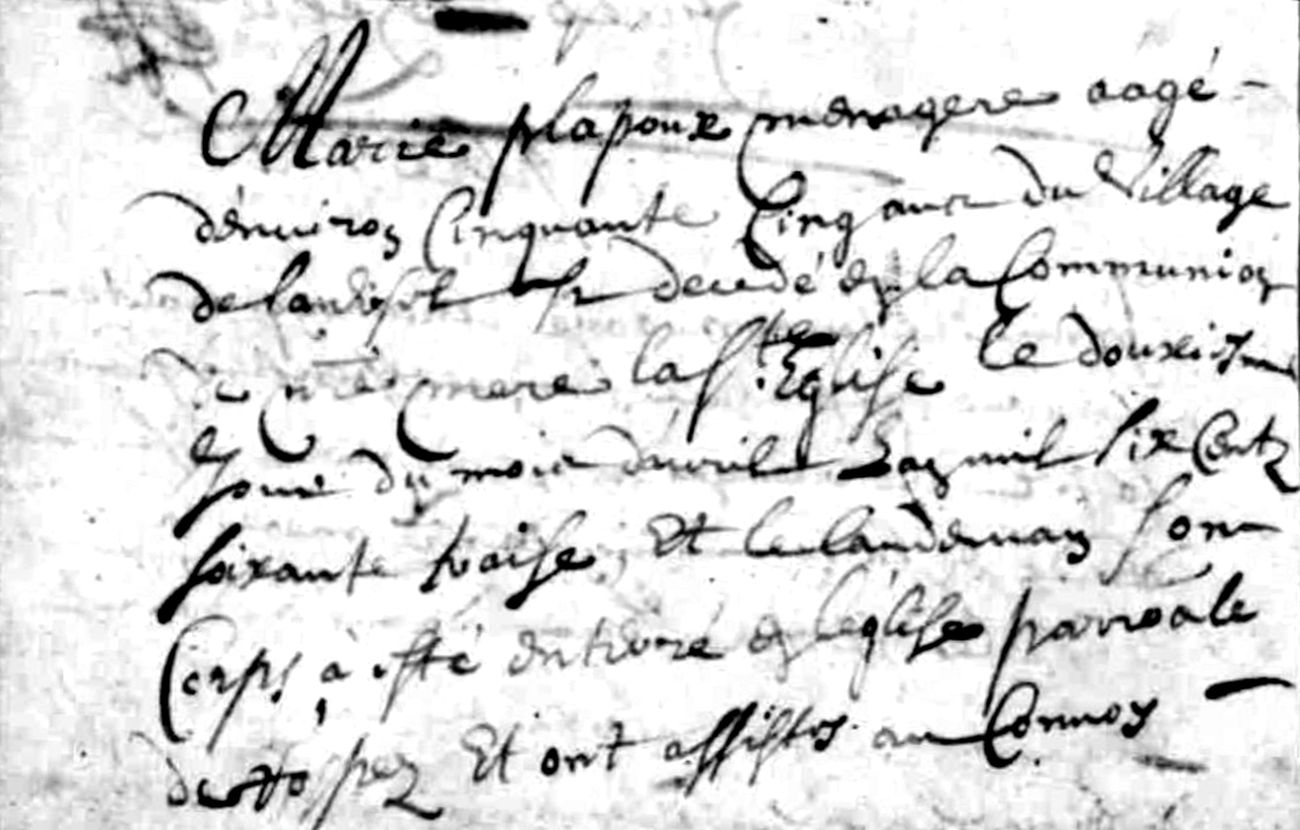 Marie plapoux menagere aagé
d'enuiron Cinquante Cinq ans du Village
de est decedé en la Communion
de nre mere la Ste Eglise le douxiesme
Jour du mois d'auril L'an mil six Centz
soixante traise, Et le landeman son
Corps à esté enterré en l'eglise parroale
de Et ont assistés au Conuoy